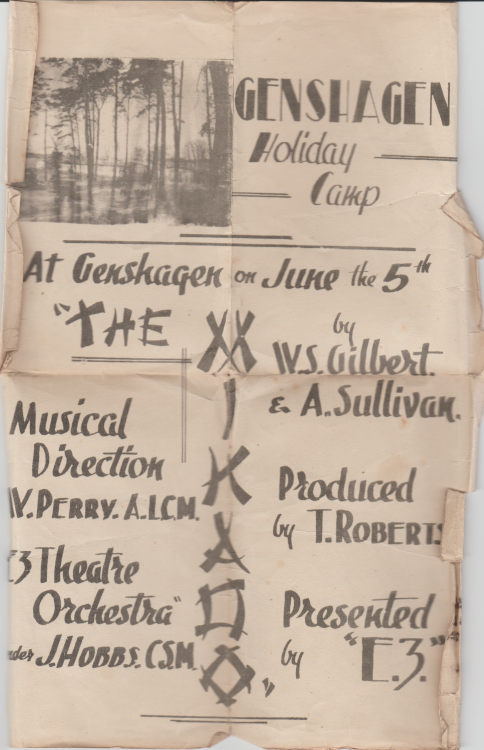 GENSHAGEN
Holiday
Camp
At Genshagen on June the 5th
"THE MIKADO"
by
W.S. Gilbert.
& A. Sullivan.
Musical
Direction
W. PERRY. A.L.C.M.
Produced
by T. ROBERTS
E3 Theatre
Orchestra"
under J. HOBBS. C.S.M.
Presented
by "E.3."